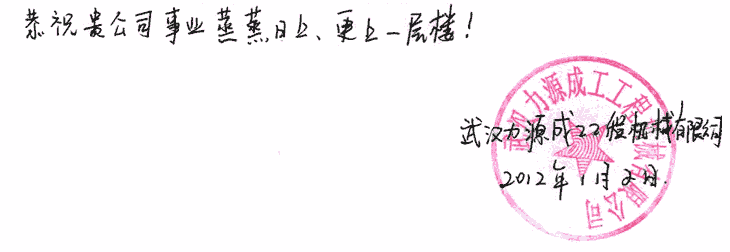 恭祝贵公司事业蒸蒸日上、更上一层楼！
武汉力源成工工程机械有限公司
武汉力源成工工程机械有限公司
2012年1月2日.